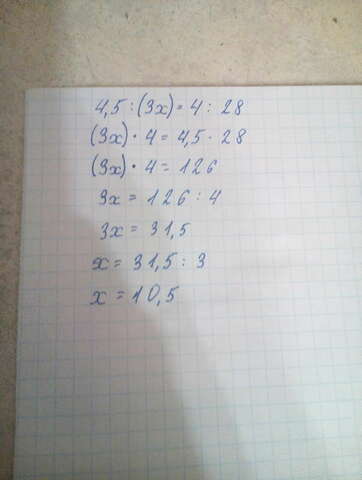 4,5 : (3x) = 4 : 28
(3x) • 4 = 4,5 • 28
(3x) • 4 = 126
3x = 126 : 4
3x = 31,5
x = 31,5 : 3
x = 10,5